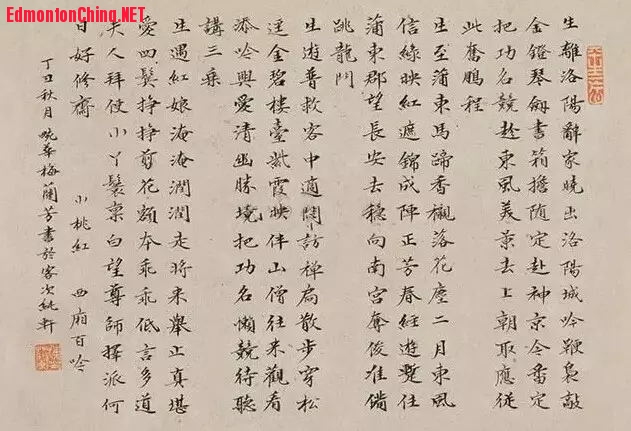 EdmontonChina.NET
生離洛陽辭家曉出洛陽城吟鞭裊敲
金鐙琴劍書箱擔隨定赴神京今番定
把功名競趁東風美景去上朝取應從
此奮鵬程
生至蒲東馬蹄香襯落花塵二月東風
信綠映紅遮錦成陣正芳春經遊蹔住
蒲東郡望長安去穩向南宮奪俊准備
跳龍門
生遊普救客中適悶訪禪扃散步穿松
逕金碧樓臺紫霞映伴山僧往來觀看
添吟興愛清幽勝境把功名懶競待聽
講三乘
生遇紅娘淹淹潤潤走將來舉止真堪
愛四鬢掙掙剪花額本乖乖低言多道
夫人拜使小丫鬟稟白望尊師擇派何
日好修齋
小桃紅 西廂百吟
丁丑秋月畹華梅蘭芳書於客次純軒